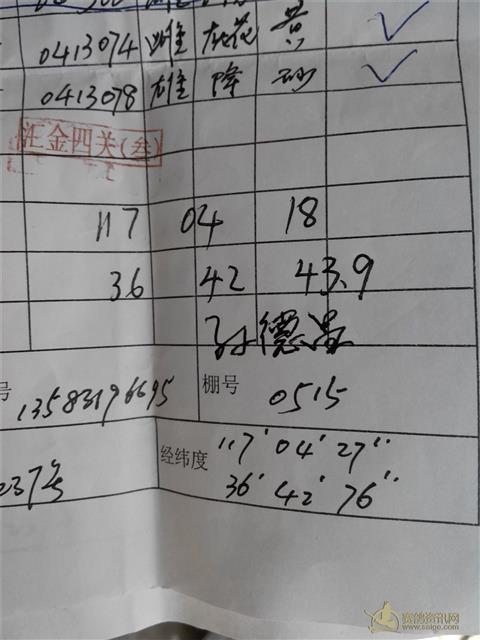 0413074 雌 灰花 黄 ✓
0413078 雄 降 砂 ✓
汇金四关(叁)
117 04 18
36 42 43.9
孙德
号 13583196695 棚号 0515
237号 经纬度 117° 04' 27''
36° 42' 76''
赛鸽资讯网
www.saige.com